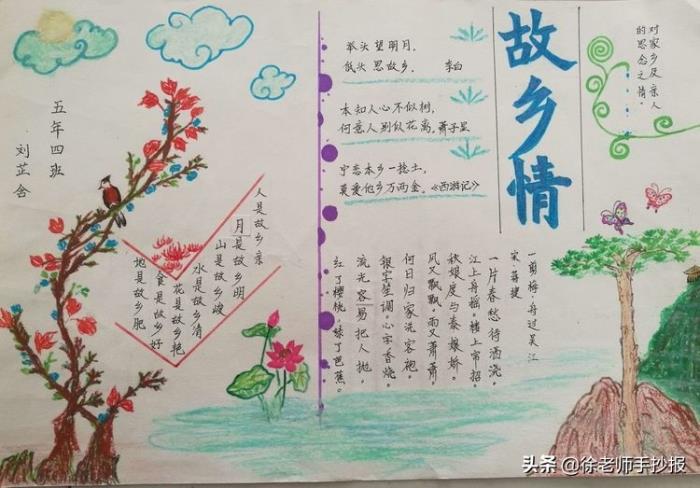 故乡情
对家乡及亲人
的思念之情。
举头望明月,
低头思故乡。 李白
本知人心不似树,
何意人别似花离。萧子显
宁恋本乡一捻土,
莫爱他乡万两金。《西游记》
一剪梅·舟过吴江
宋 蒋捷
一片春愁待酒浇。
江上舟摇。楼上帘招。
秋娘度与泰娘娇。
风又飘飘。雨又萧萧。
何日归家洗客袍。
银字笙调。心字香烧。
流光容易把人抛。
红了樱桃。绿了芭蕉。
人是故乡亲
月是故乡明
山是故乡峻
水是故乡清
花是故乡艳
食是故乡好
地是故乡肥
五年四班
刘芷含
头条 @徐老师手抄报